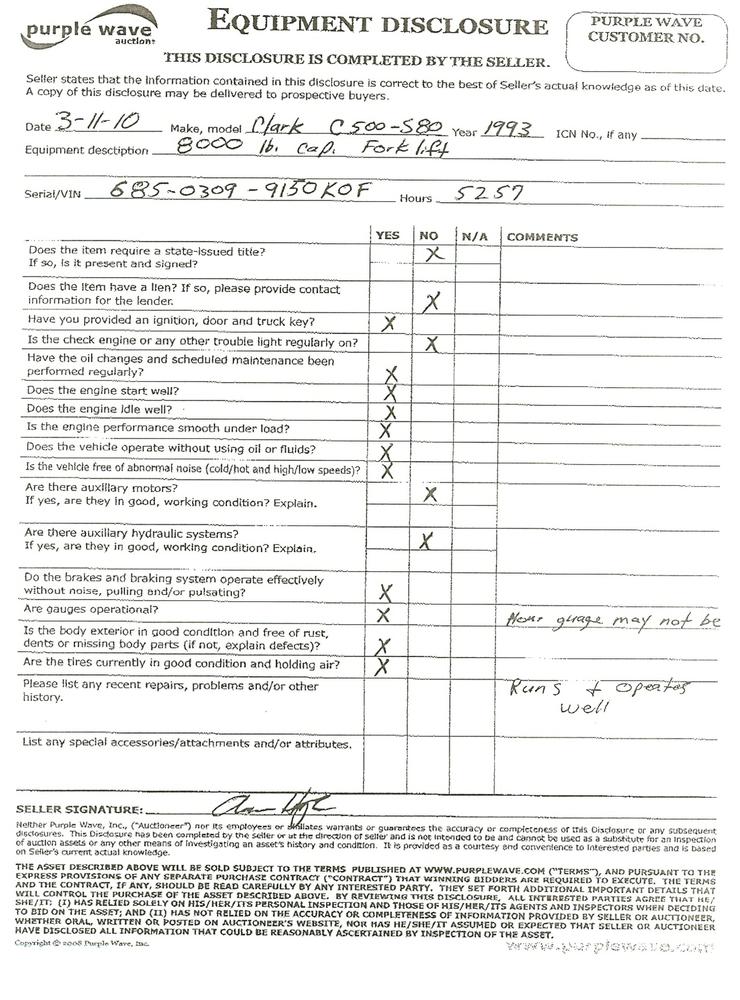 purple wave
auction
EQUIPMENT DISCLOSURE
PURPLE WAVE
CUSTOMER NO.
THIS DISCLOSURE IS COMPLETED BY THE SELLER.
Seller states that the information contained in this disclosure is correct to the best of Seller's actual knowledge as of this date.
A copy of this disclosure may be delivered to prospective buyers.
Date 3-11-10 Make, model Clark C500-S80 Year 1993 ICN No., if any
Equipment desctiption 8000 lb. cap. Fork lift
Serial/VIN 685-0309-9150KOF Hours 5257
YES NO N/A COMMENTS
Does the item require a state-issued title? X
If so, is it present and signed?
Does the item have a lien? If so, please provide contact
information for the lender. X
Have you provided an ignition, door and truck key? X
Is the check engine or any other trouble light regularly on? X
Have the oil changes and scheduled maintenance been
performed regularly? X
Does the engine start well? X
Does the engine idle well? X
Is the engine performance smooth under load? X
Does the vehicle operate without using oil or fluids? X
Is the vehicle free of abnormal noise (cold/hot and high/low speeds)? X
Are there auxiliary motors? X
If yes, are they in good, working condition? Explain.
Are there auxiliary hydraulic systems? X
If yes, are they in good, working condition? Explain.
Do the brakes and braking system operate effectively
without noise, pulling and/or pulsating? X
Are gauges operational? X Hour guage may not be
Is the body exterior in good condition and free of rust,
dents or missing body parts (if not, explain defects)? X
Are the tires currently in good condition and holding air? X
Please list any recent repairs, problems and/or other Runs + Operates
history. well
List any special accessories/attachments and/or attributes.
SELLER SIGNATURE:
Neither Purple Wave, Inc., ("Auctioneer") nor its employees or affiliates warrants or guarantees the accuracy or completeness of this Disclosure or any subsequent
disclosures. This Disclosure has been completed by the seller or at the direction of seller and is not intended to be and cannot be used as a substitute for an inspection
of auction assets or any other means of investigating an asset's history and condition. It is provided as a courtesy and convenience to interested parties and is based
on Seller's current actual knowledge.
THE ASSET DESCRIBED ABOVE WILL BE SOLD SUBJECT TO THE TERMS PUBLISHED AT WWW.PURPLEWAVE.COM ("TERMS"), AND PURSUANT TO THE
EXPRESS PROVISIONS OF ANY SEPARATE PURCHASE CONTRACT ("CONTRACT") THAT WINNING BIDDERS ARE REQUIRED TO EXECUTE. THE TERMS
AND THE CONTRACT, IF ANY, SHOULD BE READ CAREFULLY BY ANY INTERESTED PARTY. THEY SET FORTH ADDITIONAL IMPORTANT DETAILS THAT
MAY CONTROL THE PURCHASE OF THE ASSET DESCRIBED ABOVE. BY REVIEWING THIS DISCLOSURE, ALL INTERESTED PARTIES AGREE THAT HE/
SHE/IT: (I) HAS RELIED SOLELY ON HIS/HER/ITS PERSONAL INSPECTION AND THOSE OF HIS/HER/ITS AGENTS AND INSPECTORS WHEN DECIDING
TO BID ON THE ASSET; AND (II) HAS NOT RELIED ON THE ACCURACY OR COMPLETENESS OF INFORMATION PROVIDED BY SELLER OR AUCTIONEER,
WHETHER ORAL, WRITTEN OR POSTED ON AUCTIONEER'S WEBSITE, NOR HAS HE/SHE/IT ASSUMED OR EXPECTED THAT SELLER OR AUCTIONEER
HAVE DISCLOSED ALL INFORMATION THAT COULD BE REASONABLY ASCERTAINED BY INSPECTION OF THE ASSET.
Copyright © 2008 Purple Wave, Inc.
www.purplewave.com